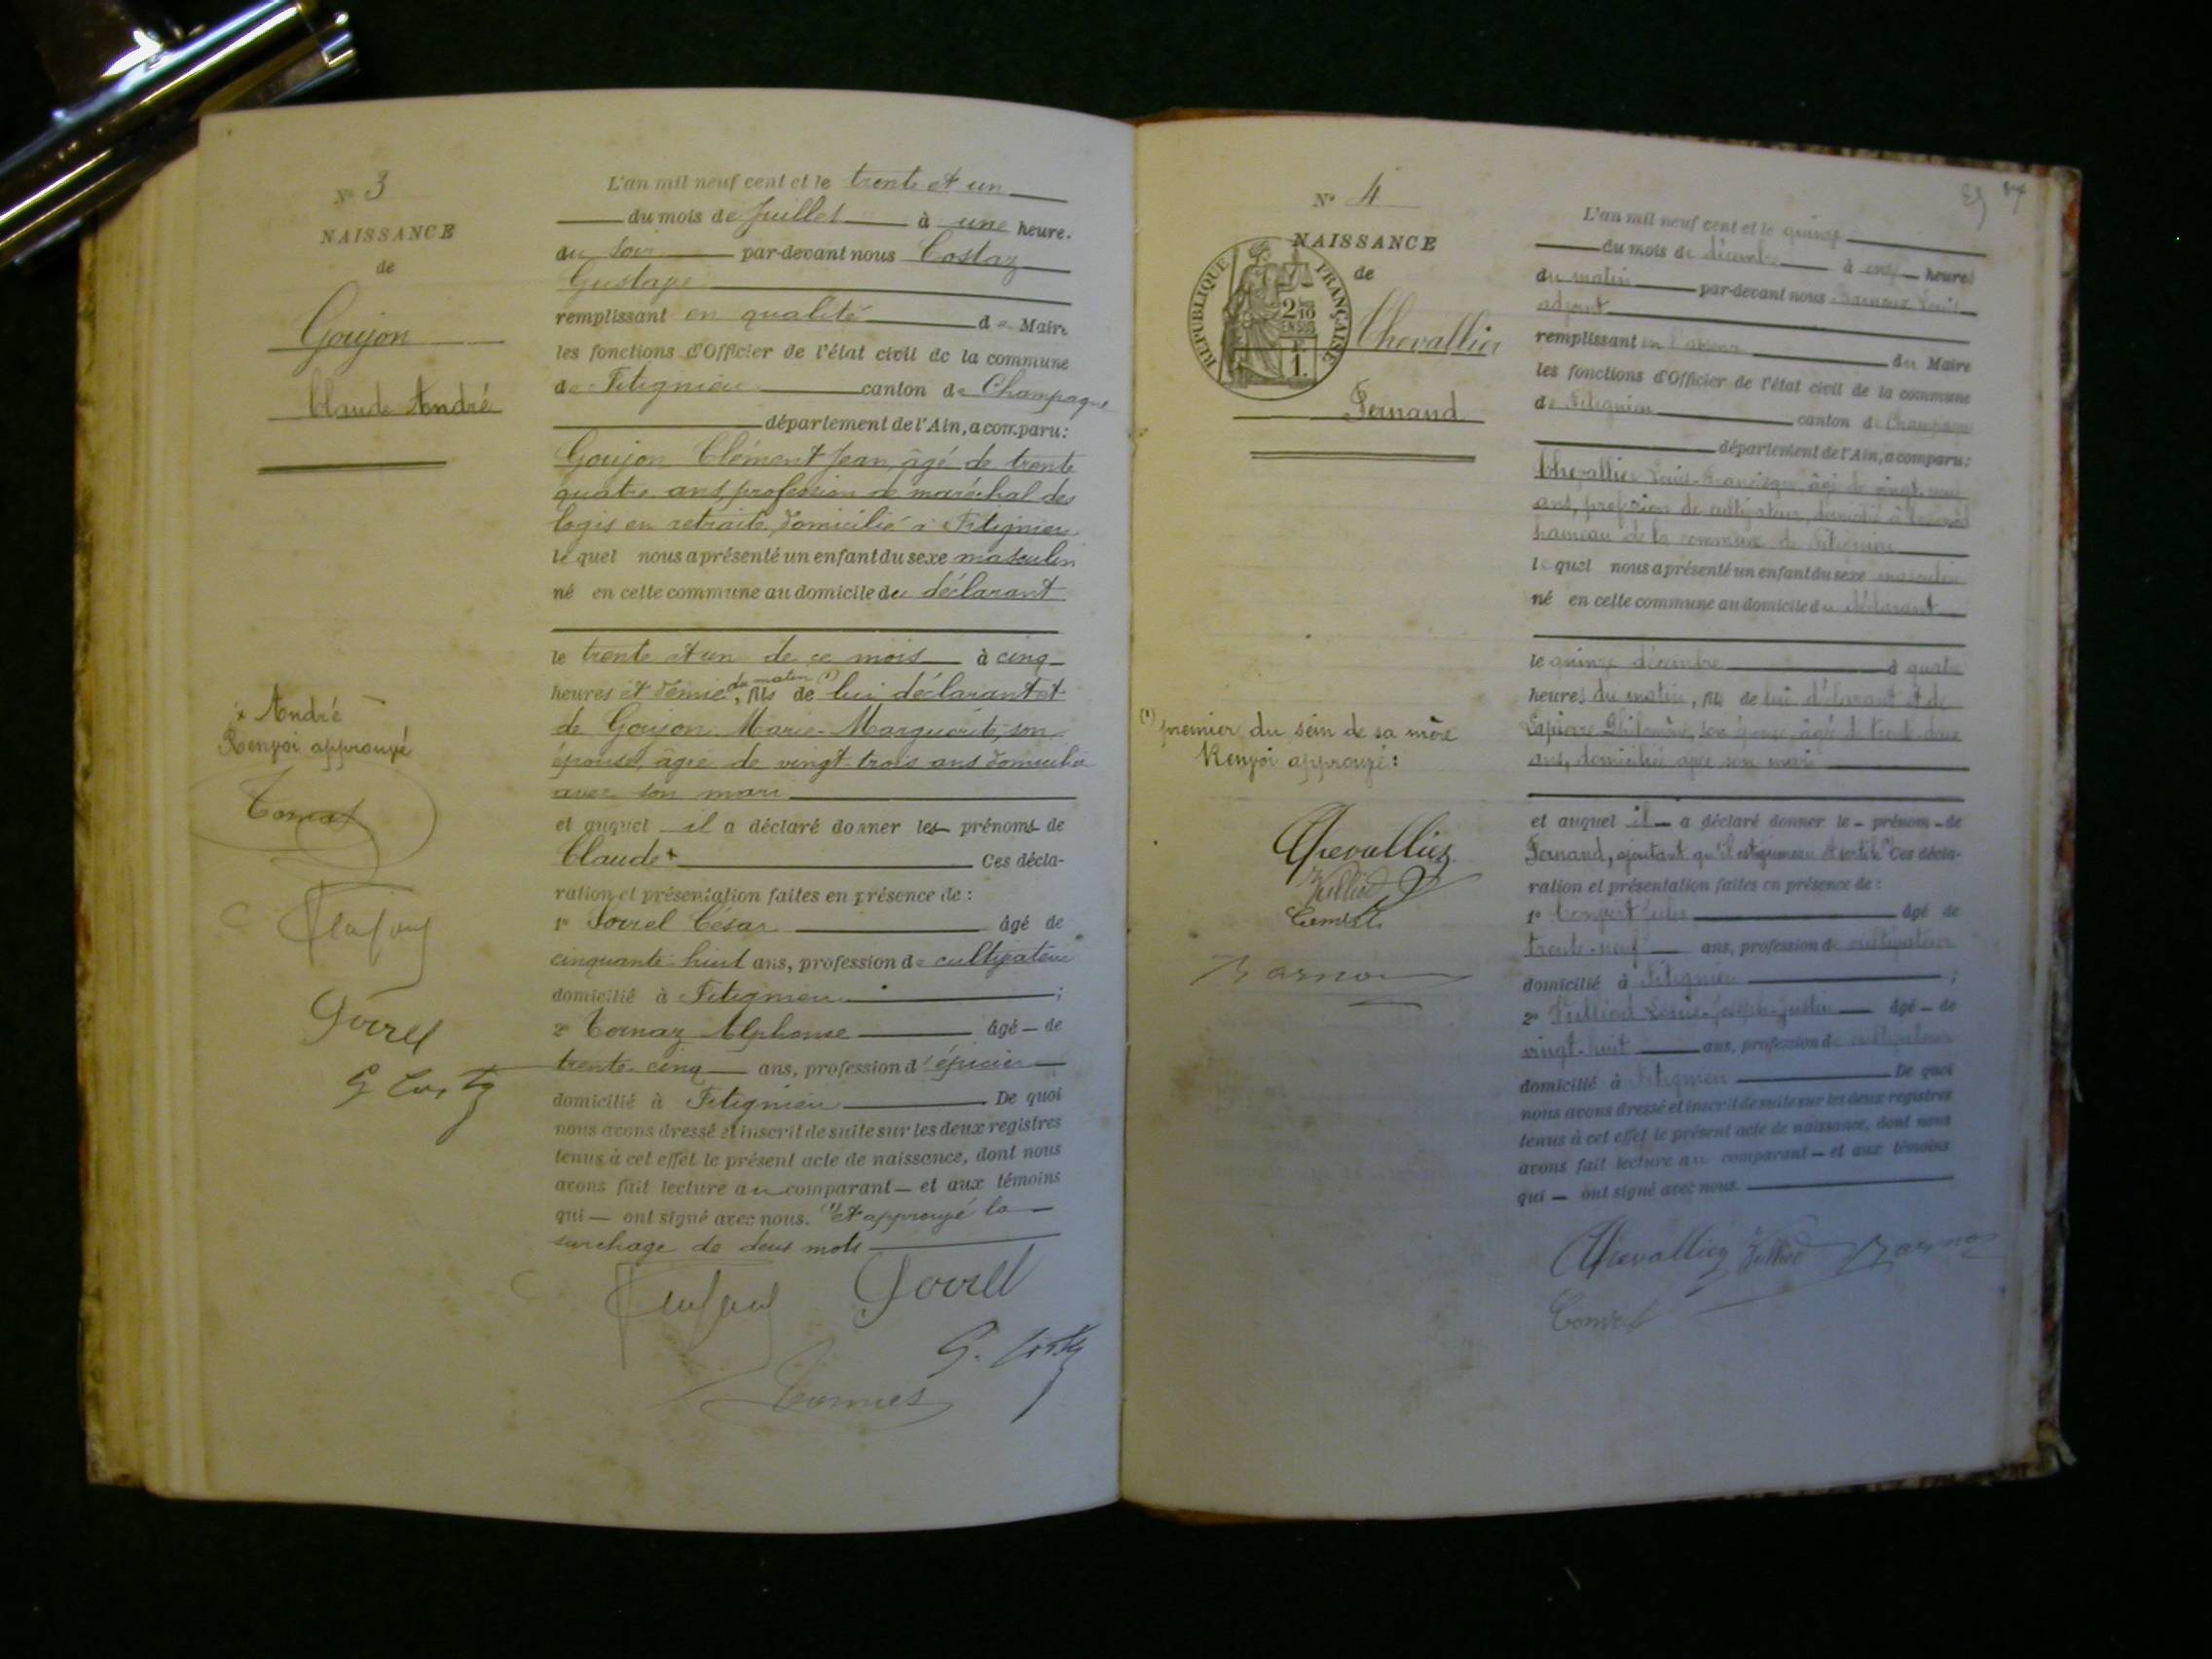 N° 3
NAISSANCE
de
Goujon
Claude André
L'an mil neuf cent et le trente et un
du mois de Juillet à une heure.
du soir par-devant nous Costaz
Gustave
remplissant en qualité de Maire
les fonctions d'Officier de l'état civil de la commune
de Fitignieu canton de Champagne
département de l'Ain, a comparu:
Goujon Clément Jean, âgé de trente
quatre ans, profession de maréchal des
logis en retraite, domicilié à Fitignieu
lequel nous a présenté un enfant du sexe masculin
né en cette commune au domicile du déclarant
le trente et un de ce mois à cinq
heures et demie, du matin (1) fils de lui déclarant et
de Goujon Marie-Marguerite, son
épouse, âgée de vingt-trois ans domiciliée
avec son mari
et auquel il a déclaré donner les prénoms de
Claude + Ces décla-
ration et présentation faites en présence de :
1° Sorrel César âgé de
cinquante-huit ans, profession de cultivateur
domicilié à Fitignieu ;
2° Tornaz Alphonse âgé de
trente-cinq ans, profession d'épicier
domicilié à Fitignieu De quoi
nous avons dressé et inscrit de suite sur les deux registres
tenus à cet effet le présent acte de naissance, dont nous
avons fait lecture au comparant et aux témoins
qui ont signé avec nous. (1) et approuvé la
surchage de deux mots
Sorrel
x André
Renvoi approuvé
Sorrel
N° 4
NAISSANCE
de
RÉPUBLIQUE FRANÇAISE
2/10
EN SUS
F.
1.
Chevallier
Fernand
L'an mil neuf cent et le quinze
du mois de décembre à onze heures
du matin par-devant nous Louis
adjoint
remplissant en l'absence du Maire
les fonctions d'Officier de l'état civil de la commune
de Fitignieu canton de Champagne
département de l'Ain, a comparu:
Chevallier Louis-Francisque, âgé de vingt-neuf
ans, profession de cultivateur, domicilié à
hameau de la commune de Fitignieu
lequel nous a présenté un enfant du sexe masculin
né en cette commune au domicile du déclarant
le quinze décembre à quatre
heures du matin, fils de lui déclarant et de
Lapierre Philomène, son épouse, âgée de trente-deux
ans, domiciliée avec son mari
et auquel il a déclaré donner le prénom de
Fernand, ajoutant qu'il est jumeau et sorti le (1) Ces décla-
ration et présentation faites en présence de :
1° Jules âgé de
trente-neuf ans, profession de cultivateur
domicilié à Fitignieu ;
2° Julliod Louis-Joseph-Justin âgé de
vingt-huit ans, profession de cultivateur
domicilié à Fitignieu De quoi
nous avons dressé et inscrit de suite sur les deux registres
tenus à cet effet le présent acte de naissance, dont nous
avons fait lecture au comparant et aux témoins
qui ont signé avec nous.
Chevallier Julliod
(1) premier du sein de sa mère
Renvoi approuvé :
Chevallier
Julliod